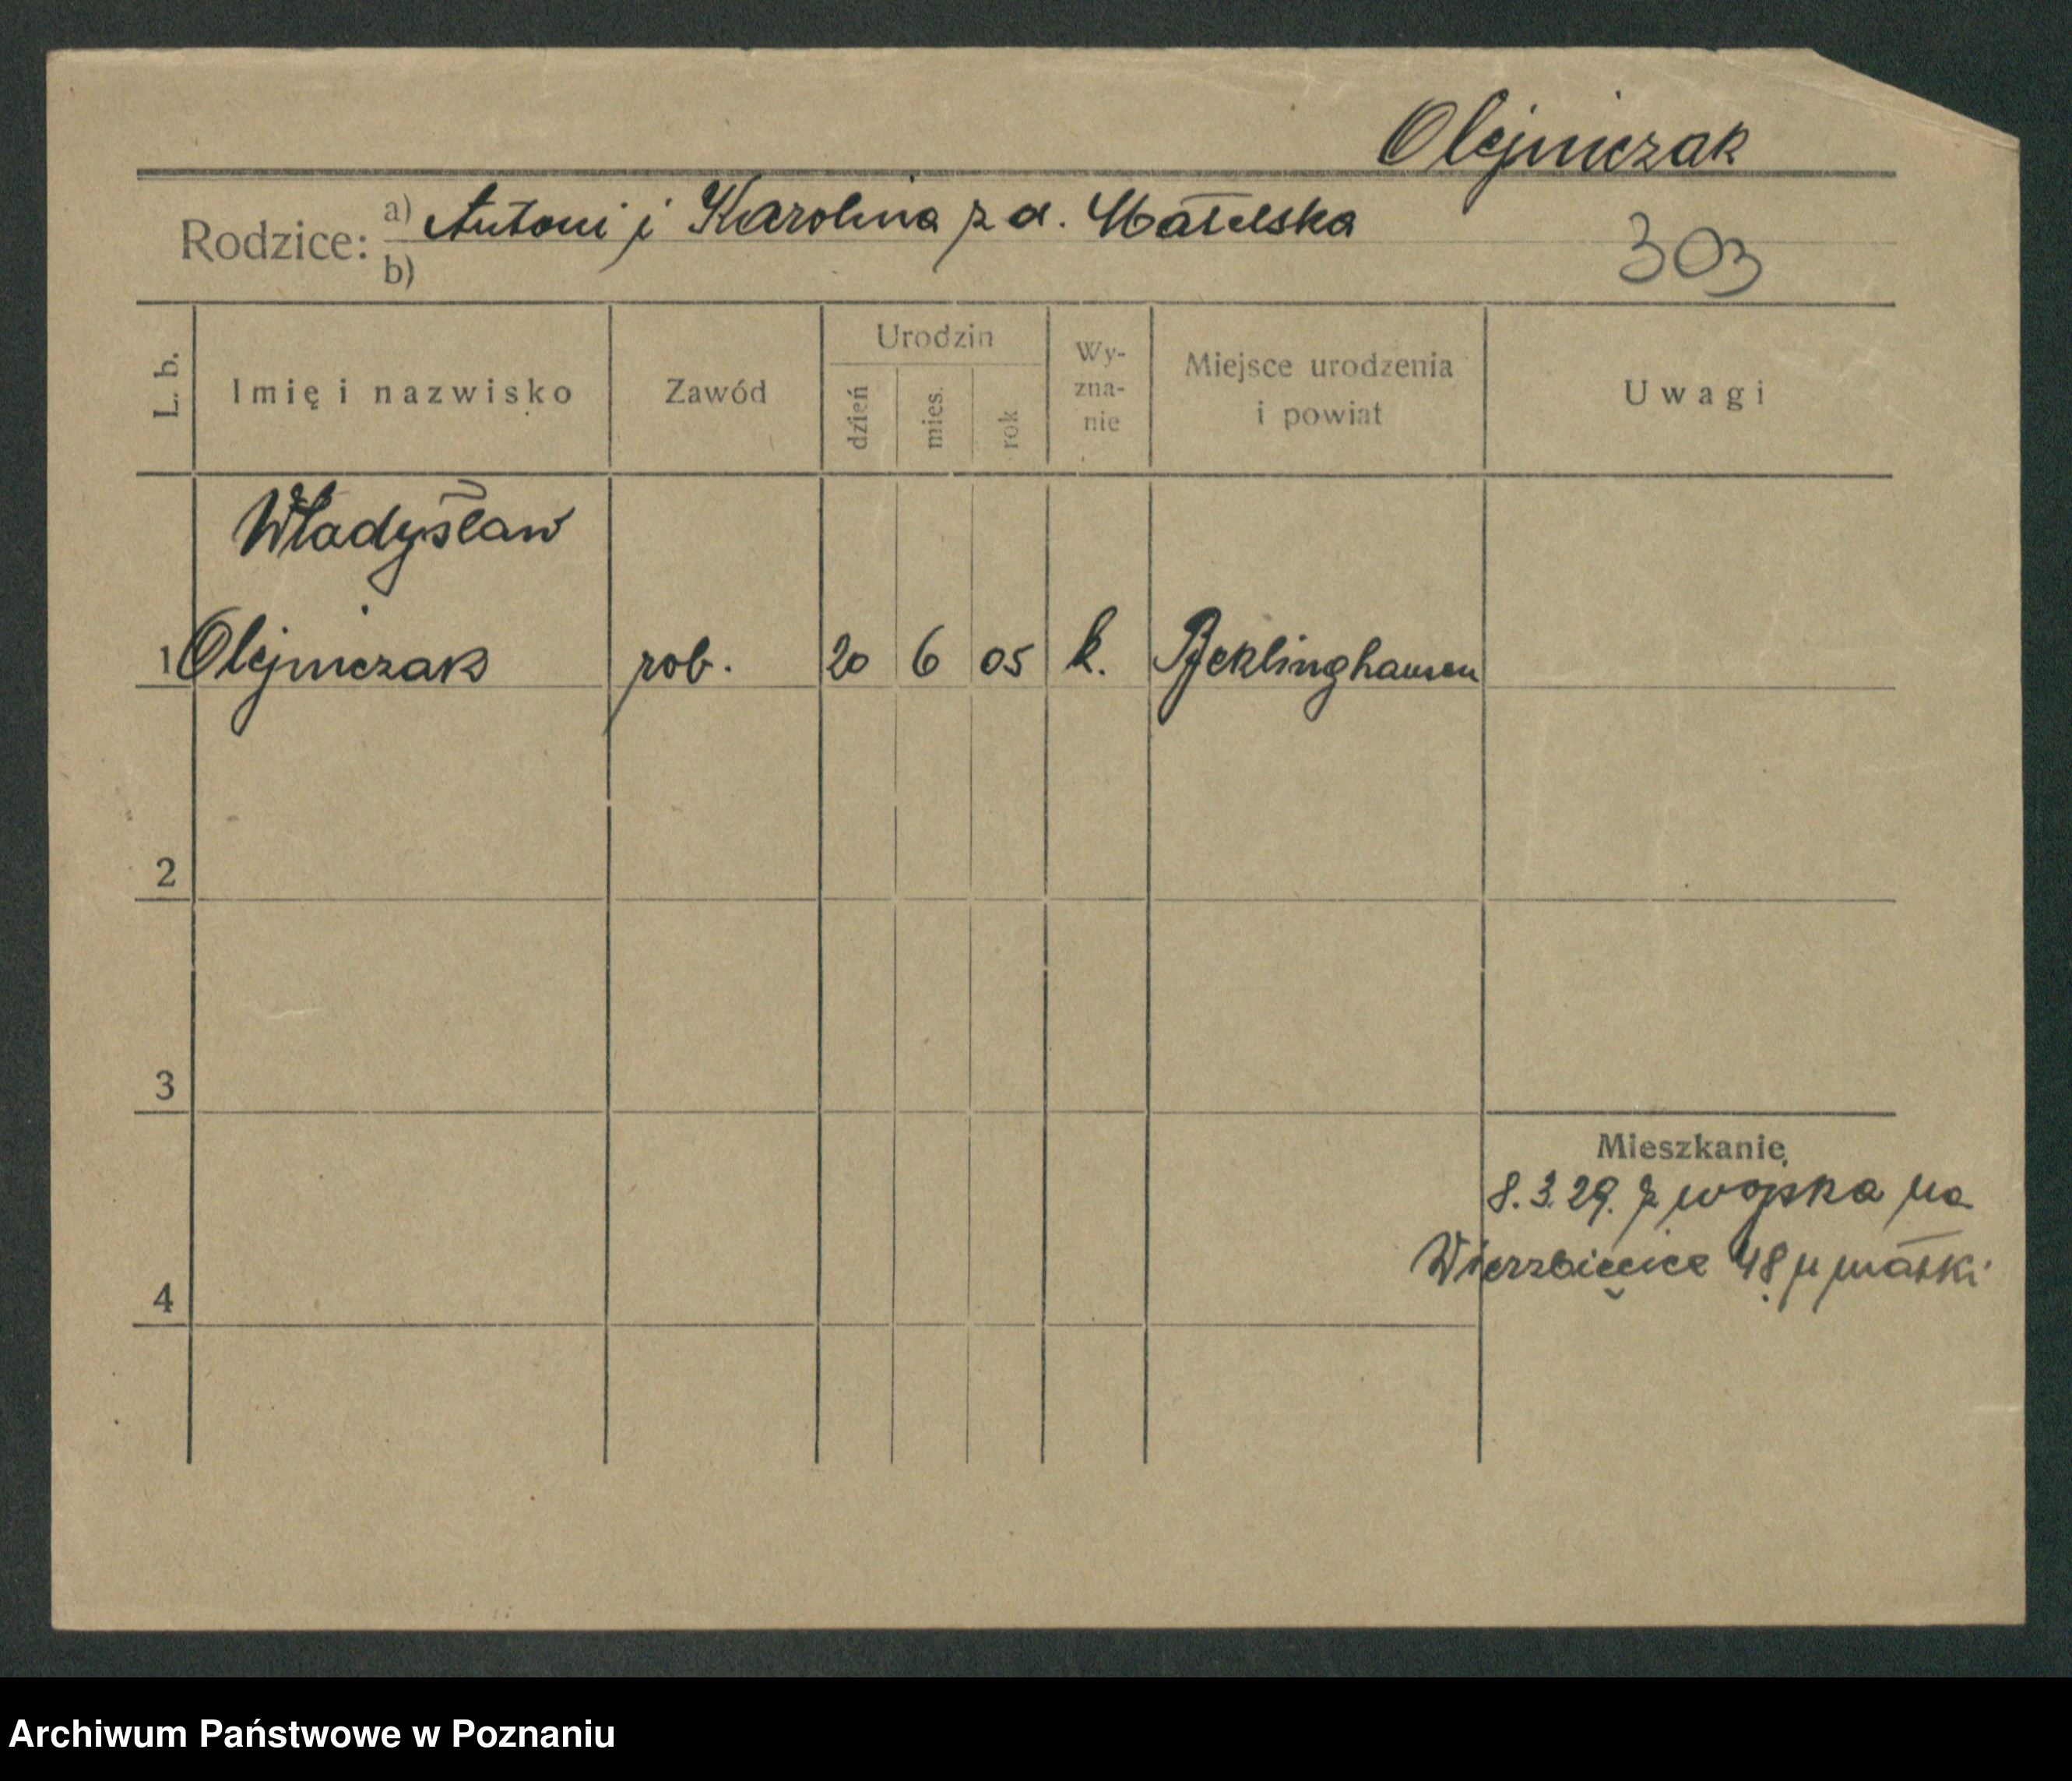 Olejniczak
Rodzice: a) Antoni i Karolina z d. Małelska
b)
303
L. b.
Imię i nazwisko
Zawód
Urodzin
dzień
mies.
rok
Wy-
zna-
nie
Miejsce urodzenia
i powiat
Uwagi
Władysław
1 Olejniczak rob. 20 6 05 k. Reklinghausen
2
3
Mieszkanie
8.3.29. z wojska na
Wierzbięcice 48 u matki
4
Archiwum Państwowe w Poznaniu